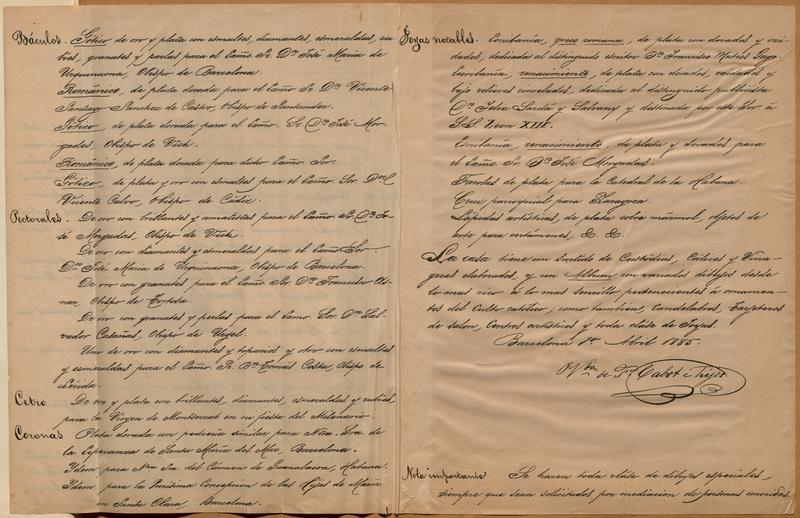 Báculos. Gótico de oro y plata con esmaltes, diamantes, esmeraldas, ru
bíes, granates y perlas para el Exmo. Sr. Dn. José María de
Urquinaona, Obispo de Barcelona.
Románico, de plata dorada para el Exmo. Sr. Dn. Vicente
Santiago Sanchez de Castro, Obispo de Santander.
Gótico, de plata dorada para el Exmo. Sr. Dn. José Mor-
gades, Obispo de Vich.
Románico, de plata dorada para dicho Exmo. Sor.
Gótico, de plata y oro con esmaltes para el Exmo. Sor. Dn.
Vicente Calvo, Obispo de Cádiz.
Pectorales. De oro con brillantes y amatistas para el Exmo. Sr. Dn. Jo-
sé Morgades, Obispo de Vich.
De oro con diamantes y esmeraldas para el Exmo. Sor.
Dn. José María de Urquinaona, Obispo de Barcelona.
De oro con granates para el Exmo. Sor. Dn. Francisco As-
nar, Obispo de Tortosa.
De oro con granates y perlas para el Exmo. Sor. Dn. Sal-
vador Casañas, Obispo de Urgel.
Uno de oro con diamantes y topacios y otro con esmaltes
y esmeraldas para el Exmo. Sr. Dn. Tomás Costa, Obispo de
Lérida.
Cetro De oro y plata con brillantes, diamantes, esmeraldas y rubíes,
para la Virgen de Montserrat en su fiesta del Milenario.
Coronas Plata dorada con pedrería similar para Ntra. Sra. de
la Esperanza de Santa María del Mar, Barcelona.
Idem para Ntra. Sra. del Cármen de Guanabacoa, Habana.
Idem para la Purísima Concepción de las Hijas de María
en Santa Clara, Barcelona.
Joyas notables. Escribanía, greco romana, de plata con dorados y oxi
dados, dedicada al distinguido escritor Dn. Francisco Mateos Gago.
Escribanía, renacimiento, de plata con dorados, oxidados y
bajo relieves cincelados, dedicada al distinguido publicista
Dn. Felix Sardá y Salvany y destinada por este Sor. á
S.S. Leon XIII.
Escribanía, renacimiento, de plata y dorados para
el Exmo. Sr. Dn. José Morgadas.
Farolas de plata para la Catedral de la Habana.
Cruz parroquial para Zaragoza.
Lápidas artísticas, de plata sobre mármol, objetos de
arte para certámenes, &. &.
La casa tiene un surtido de Custodias, Cálices y Vina-
geras elaborados, y un Album con variados dibujos desde
lo mas rico á lo mas sencillo pertenecientes á ornamen-
tos del culto católico; como tambien, Candelabros, Tarjeteros
de salon, Centros artísticos y toda clase de Joyas.
Barcelona 1º. Abril 1885.
Vda. de Fo. Cabot é Hijos
Nota importante Se hacen toda clase de dibujos especiales,
siempre que sean solicitados por mediacion de personas conocidas.